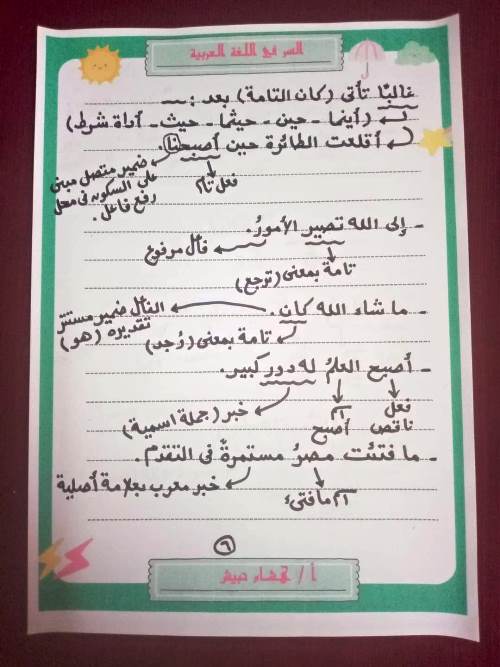 السر في اللغة العربية
غالبًا تأتى (كان التامة) بعد :
(أينما - حين - حيثما - حيث - أداة شرط)
أقلعت الطائرة حين أصبحنا.
ضمير متصل مبنى
على السكون فى محل
رفع فاعل.
فعل تام
- إلى الله تصير الأمورُ.
فاعل مرفوع
تامة بمعنى (ترجع)
- ما شاء الله كان.
الفاعل ضمير مستتر
تقديره (هو)
تامة بمعنى (وُجد)
- أصبح العلمُ له دور كبير.
فعل
ناقص
اسم
أصبح
خبر (جملة اسمية)
- ما فتئت مصرُ مستمرةً فى التقدم.
اسم ما فتىء
خبر معرب بعلامة أصلية
٦
أ /